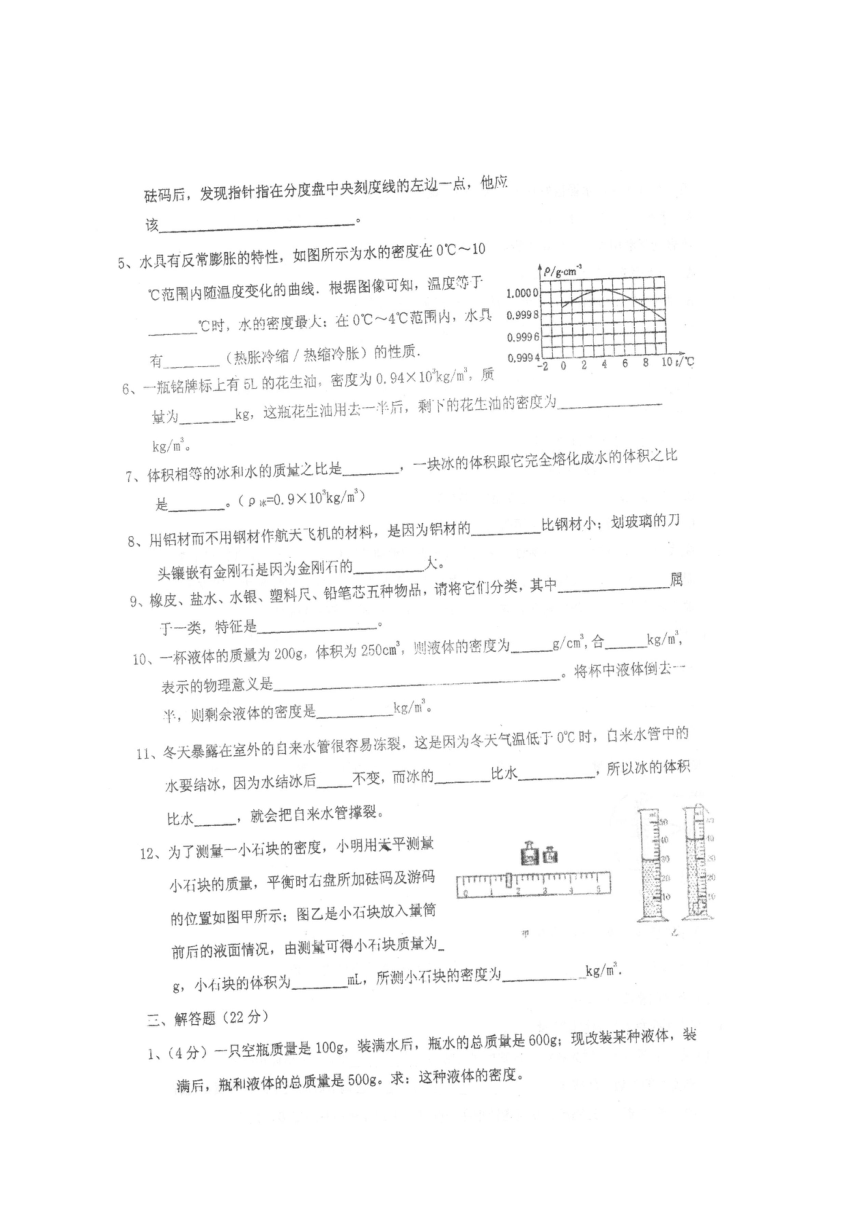 砝码后，发现指针指在分度盘中央刻度线的左边一点，他应
该____________。
5、水具有反常膨胀的特性，如图所示为水的密度在0℃～10
℃范围内随温度变化的曲线．根据图像可知，温度等于
______℃时，水的密度最大；在0℃～4℃范围内，水具
有______（热胀冷缩／热缩冷胀）的性质．
ρ/g·cm⁻³
1.0000
0.9998
0.9996
0.9994
-2 0 2 4 6 8 10 t/℃
6、一瓶铭牌标上有5L的花生油，密度为0.94×10³kg/m³，质
量为______kg，这瓶花生油用去一半后，剩下的花生油的密度为__________
kg/m³。
7、体积相等的冰和水的质量之比是______，一块冰的体积跟它完全熔化成水的体积之比
是______。（ρ冰=0.9×10³kg/m³）
8、用铝材而不用钢材作航天飞机的材料，是因为铝材的_______比钢材小；划玻璃的刀
头镶嵌有金刚石是因为金刚石的_______大。
9、橡皮、盐水、水银、塑料尺、铅笔芯五种物品，请将它们分类，其中__________属
于一类，特征是____________。
10、一杯液体的质量为200g，体积为250cm³，则液体的密度为____g/cm³，合____kg/m³，
表示的物理意义是______________________________。将杯中液体倒去一
半，则剩余液体的密度是________kg/m³。
11、冬天暴露在室外的自来水管很容易冻裂，这是因为冬天气温低于0℃时，自来水管中的
水要结冰，因为水结冰后____不变，而冰的______比水________，所以冰的体积
比水____，就会把自来水管撑裂。
12、为了测量一小石块的密度，小明用天平测量
小石块的质量，平衡时右盘所加砝码及游码
的位置如图甲所示；图乙是小石块放入量筒
前后的液面情况，由测量可得小石块质量为_
g，小石块的体积为______mL，所测小石块的密度为__________kg/m³．
0 1 2 3 4 5
甲
50
40
30
20
10
乙
三、解答题（22分）
1、（4分）一只空瓶质量是100g，装满水后，瓶水的总质量是600g；现改装某种液体，装
满后，瓶和液体的总质量是500g。求：这种液体的密度。